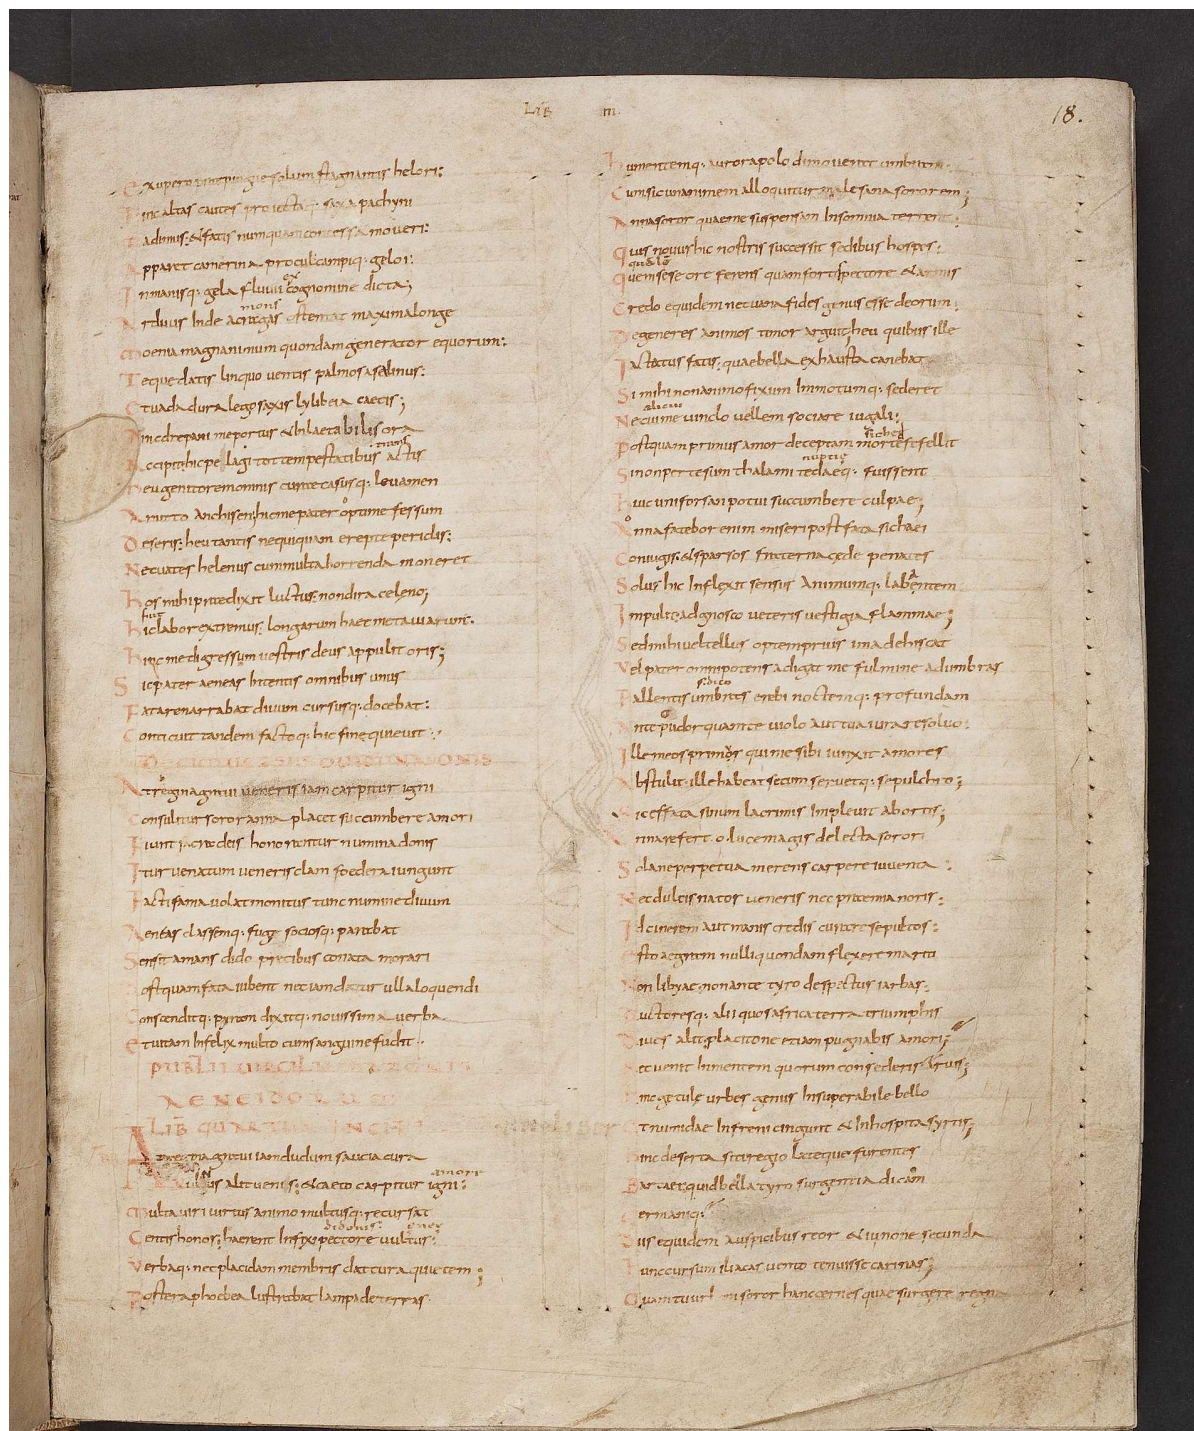 LIB III
18.
Exupero praepingue solum stagnantis helori:
Hinc altas cautes proiectaq; saxa pachyni
Radimus: & fatis numquam concessa moueri:
Apparet camerina procul: campiq; geloi:
ex
Inmanisq; gela fluuii cognomine dicta;
mons
Arduus inde acragas ostentat maxima longe
Moenia magnanimum quondam generator equorum:
Teque datis linquo ventis palmosa selinus:
Et uada dura lego saxis lylibeia caecis;
Hinc drepani me portus & inlaetabilis ora
Accipit: hic pelagi tot tempestatibus actis
Heu genitorem omnis curae casusq; leuamen
Amitto anchisen: hic me pater optime fessum
Deseris: heu tantis nequiquam erepte periclis:
Nec uates helenus cum multa horrenda moneret
Hos mihi praedixit luctus: non dira celeno;
fuit
Hic labor extremus: longarum haec meta uiarum:
Hinc me digressum uestris deus appulit oris;
Sic pater aeneas intentis omnibus unus
Fata renarrabat diuum cursusq; docebat:
Conticuit tandem factoq; hic fine quieuit
At regina graui ueneris iam carpitur igni
Consulitur soror anna placet succumbere amori
Fiunt sacra deis honorantur numina donis
Itur uenatum ueneris clam foedera iungunt
Facti fama uolat monitus tunc numine diuum
Aeneas classemq; fugae sociosq; parabat
Sensit amans dido precibus conata morari
Postquam fata iubent nec iam datur ulla loquendi
Conscenditq; pyram dixitq; nouissima uerba
Et uitam infelix multo cum sanguine fudit
PUBLII UIRGILII MARONIS
AENEIDORUM
LIB QUARTUS INCIPIT
At regina graui iamdudum saucia cura
amore
Vulnus alit uenis: & caeco carpitur igni:
Multa uiri uirtus animo multusq; recursat
didonis: eneę
Gentis honos: haerent infixi pectore uultus:
Verbaq; nec placidam membris dat cura quietem;
Postera phoebea lustrabat lampade terras
Humentemq; aurora polo dimouerat umbram
Cum sic unanimem alloquitur male sana sororem;
Anna soror quae me suspensam Insomnia terrent:
Quis nouus hic nostris successit sedibus hospes:
Quem sese ore ferens quam forti pectore & armis
Credo equidem nec uana fides genus esse deorum:
Degeneres animos timor arguit; heu quibus ille
Iactatus fatis: quae bella exhausta canebat
Si mihi non animo fixum Inmotumq; sederet
alicui
Ne cui me uinclo uellem sociare iugali:
sichei
Postquam primus amor deceptam morte fefellit
nuptię
Si non pertesum thalami tedaeq; fuissent
Huic uni forsan potui succumbere culpae;
Anna fatebor enim miseri post fata sichaei
Coniugis: & sparsos fraterna cęde penates
Solus hic Inflexit sensus Animumq; labentem
Impulit: adgnosco ueteris uestigia flammae;
Sed mihi uel tellus optem prius ima dehiscat
Vel pater omnipotens adigat me fulmine ad umbras
Pallentis umbras erebi noctemq; profundam
Ante pudor quam te uiolo aut tua iura resoluo:
Ille meos primos qui me sibi iunxit amores
Abstulit: ille habeat secum seruetq; sepulchro;
Sic effata sinum lacrimis Impleuit abortis;
Anna refert. o luce magis delecta sorori
Solane perpetua merens carpere iuuenta:
Nec dulcis natos ueneris nec praemia noris:
Id cinerem aut manis credis curare sepultos:
Esto aegram nulli quondam flexere mariti
Non libyae: non ante tyro despectus iarbas:
Ductoresq; alii quos africa terra triumphis
Diues alit: placitone etiam pugnabis amori;
Nec uenit Inmentem quorum consederis aruis;
Hinc getule urbes genus Insuperabile bello
Et numidae Infreni cingunt & Inhospita syrtis;
Hinc deserta siti regio lateque furentes
Barcaei: quid bella tyro surgentia dicam
Germaniq;
Dis equidem auspicibus reor & iunone secunda
Hunc cursum iliacas uento tenuisse carinas;
Quam tu urbem soror hanc cernes quae surgere regna